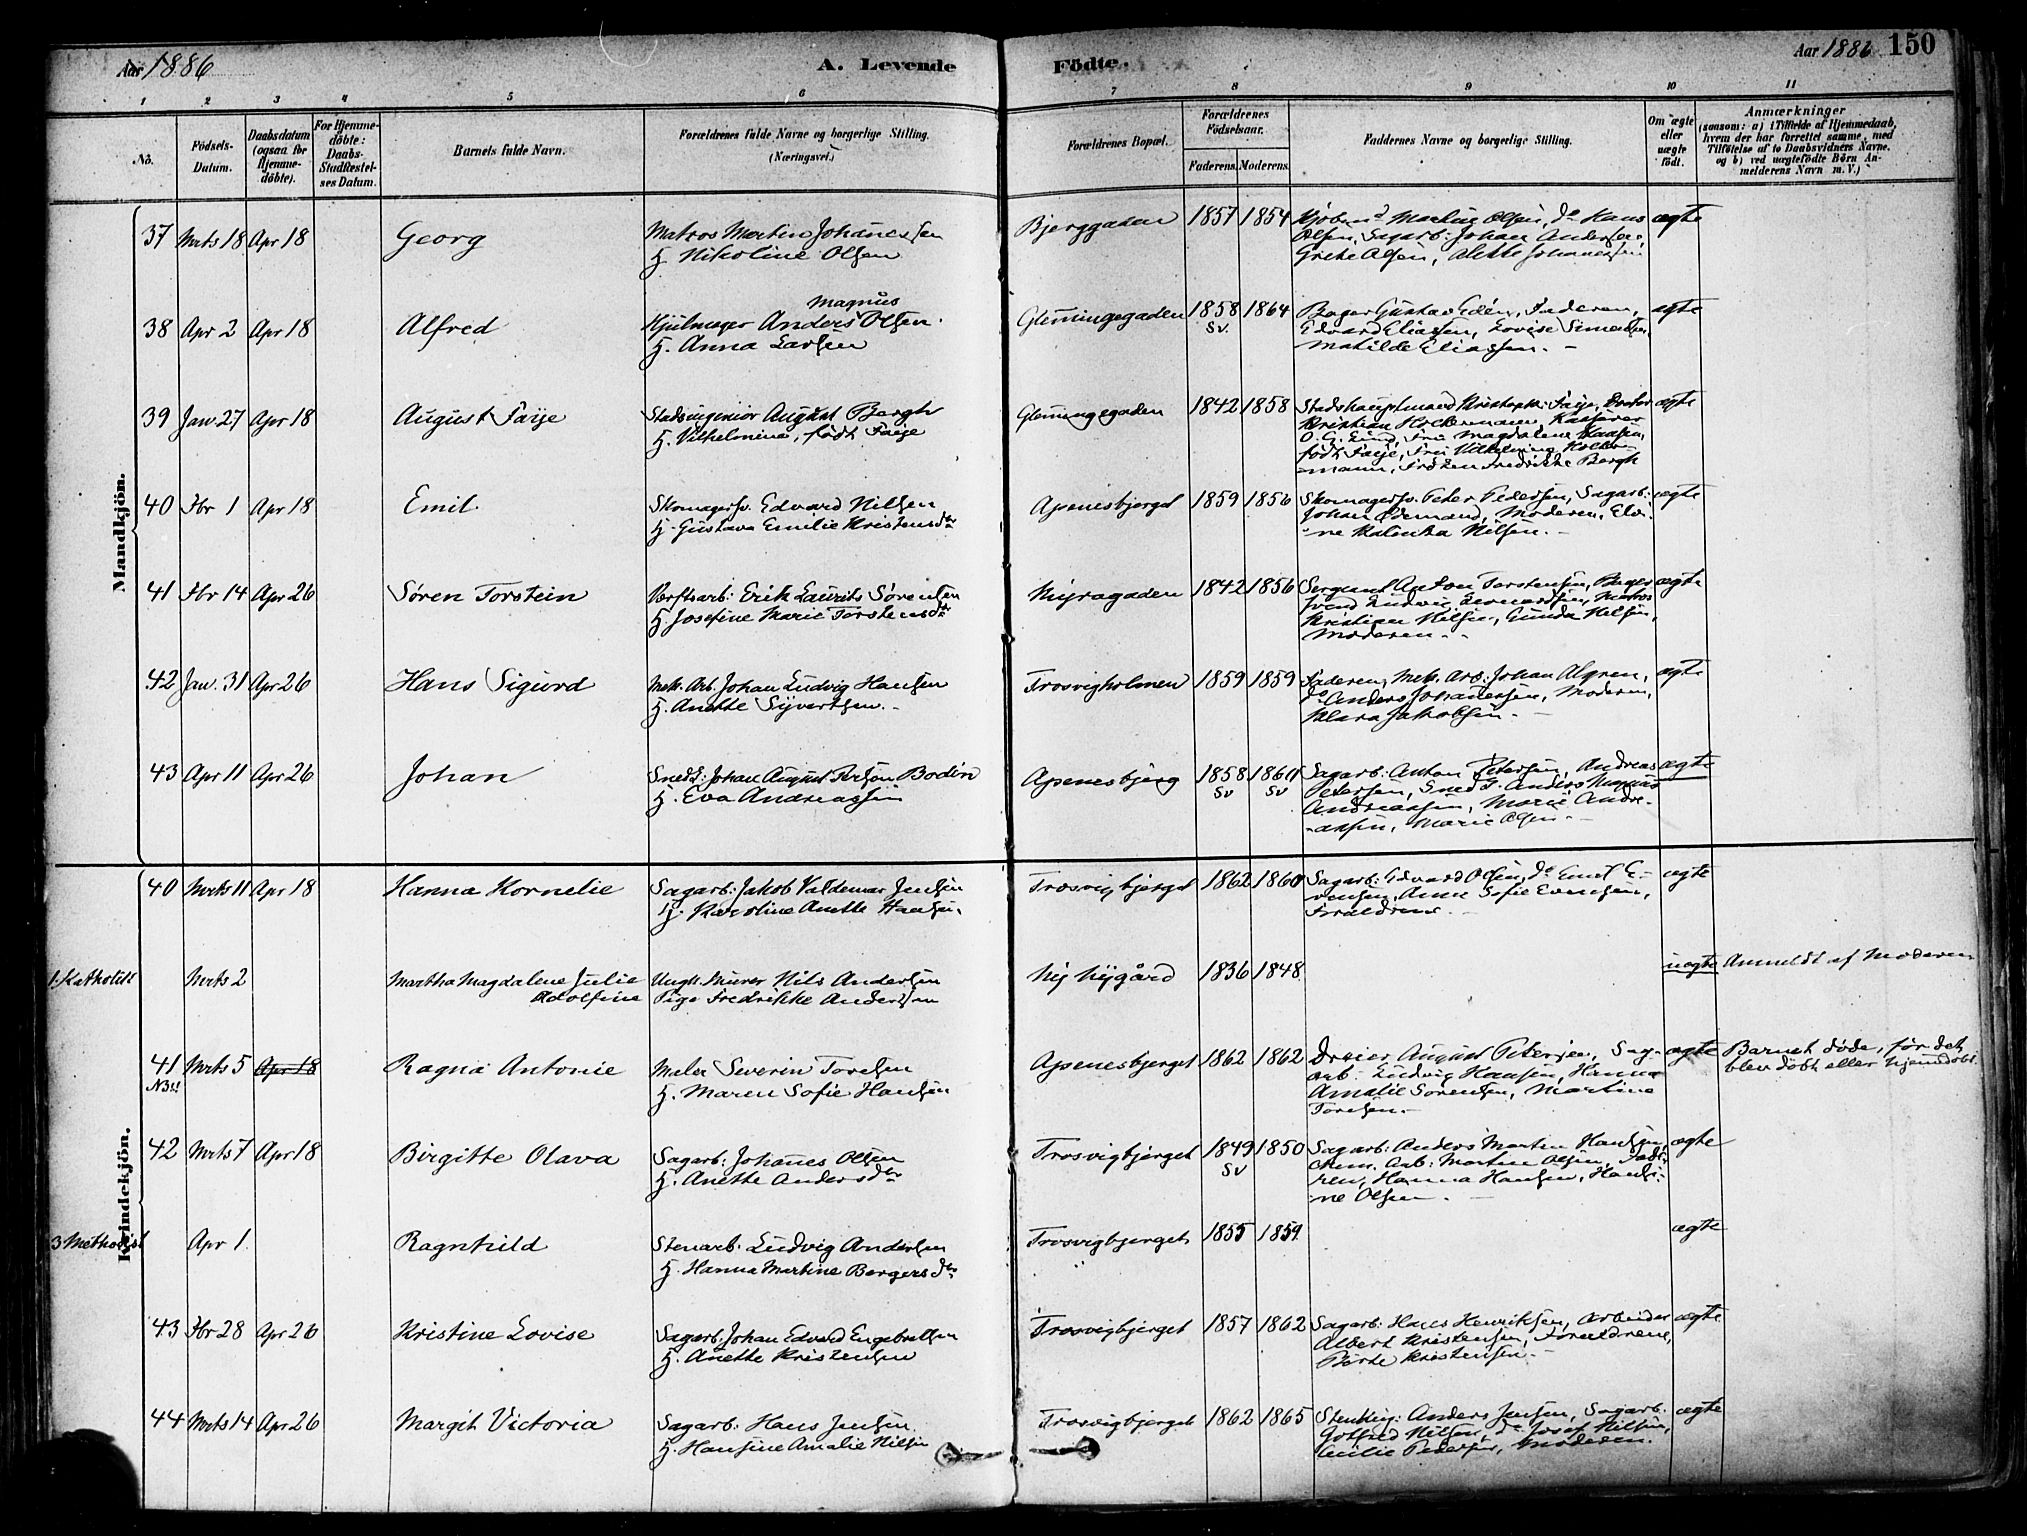 Aar 1886
A. Levende
Födte.
Aar 1886
150
1 2 3 4 5 6 7 8 9 10 11
No.
Födsels-
Datum.
Daabsdatum
(ogsaa for
Hjemme-
döbte).
For Hjemme-
döbte:
Daabs-
Stadfæstel-
ses Datum.
Barnets fulde Navn.
Forældrenes fulde Navne og borgerlige Stilling.
(Næringsvei.)
Forældrenes Bopæl.
Forældrenes
Födselsaar.
Faderens. Moderens.
Faddernes Navne og borgerlige Stilling.
Om ægte
eller
uægte
födt.
Anmærkninger
(saasom: a) i Tilfælde af Hjemmedaab,
hvem der har forrettet samme, med
Tilföielse af to Daabsvidners Navne.
og b) ved uægtefödte Börn An-
melderens Navn m. V.)
Mandkjön.
37 Mrts 18 Apr 18 Georg
Matros Martin Johanessen
H. Nikoline Olsen
Bjerggaden 1857 1854
Martin Olsen, do Hans
Olsen, Sagarb: Johan Andersen,
Grete Olsen, Alette Johanessen
ægte
38 Apr 2 Apr 18 Alfred
Magnus
Hjulmager Anders Olsen
H. Anna Larsen
Glemmingegaden 1858 1864
Sv.
Bager Gustav Edén, Faderen,
Edvard Eliassen, Lovise Simensen,
Matilde Eliassen. –
ægte
39 Jan 27 Apr 18 August Faije
Stadsingeniør August Bergh
H. Vilhelmina, født Faije
Glemmingegaden 1842 1858
Stadshauptmand Kristoph: Faije, Doctor
Kristian Holtermann, Kasserer
O. G. Lund, Fru Magdalene
født Faije, Fru Vilhelmina Holter-
mann, Frøken Fredrikke Bergh
ægte
40 Fbr 1 Apr 18 Emil
Skomagersv. Edvard Nilsen
H. Gustava Emilie Kristensdtr
Apenesbjerget 1859 1856
Skomagersv. Peter Pedersen, Sagarb:
Johan Edemand, Moderen, Elv-
-ne Katinka Nilsen. –
ægte
41 Fbr 14 Apr 26 Søren Torstein
Værftsarb: Erik Laurits Sørensen
H. Josefine Marie Torstensdtr
Nijragaden 1842 1856
Sergeant Anton Torstensen, Bager
svend Ludvig Leonardsen, Matros
Kristian Nilsen, Gunda Nilsen,
Moderen. –
ægte
42 Jan. 31 Apr 26 Hans Sigurd
Mek. Arb. Johan Ludvig Hansen
H. Anette Sijvertsen. –
Trosvigholmen 1859 1859
Faderen, Mek. Arb. Johan Algren,
do Anders Johanessen, Moderen,
Klara Jakobsen. –
ægte
43 Apr 11 Apr 26 Johan
Snedk: Johan August Person Bodin
H. Eva Andreassen
Apenesbjerg 1858 1861
Sv Sv
Sagarb: Anton Petersen, Andreas
Petersen, Snedk. Anders Magnus
Andreassen, Marie Andre-
-assen, Marie Olsen. –
ægte
Kvindekjön.
40 Mrts 11 Apr 18 Hanna Kornelie
Sagarb: Jakob Valdemar Jensen
H. Karoline Anette Hansen.
Trosvigbjerget 1862 1860
Sagarb: Edvard Olsen, do Emil E-
vensen, Anna Sofie Evensen,
Forældrene. –
ægte
1. Katholik Mrts 2 Martha Magdalene Julie
Adolfine
Ungk. Murer Nils Andersen
Pige Fredrikke Andersen
Nij Nijgård 1836 1848
uægte Anmeldt af Moderen
41 Mrts 5 Apr 18 Ragna Antonie
NB!!
Maler Severin Toresen
H. Maren Sofie Hansen
Apenesbjerget 1862 1862
Dreier August Petersen, Sag-
arb: Ludvig Hansen, Hanna
Amalie Sørensen, Martine
Toresen. –
ægte Barnet døde, før det
blev døbt eller hjemmedøbt
42 Mrts 7 Apr 18 Birgitte Olava
Sagarb: Johanes Olsen
H. Anette Andersdtr
Trosvigbjerget 1849 1850
Sv
Sagarb: Anders Martin Hansen
Chem. Arb: Martin Olsen, Fade-
ren, Hanna Hansen, Hansi-
-ne Olsen. –
ægte
3 Methodist Apr 1 Ragnhild
Stenarb. Ludvig Andersen
H. Hanna Martine Borgersdtr
Trosvigbjerget 1855 1859
ægte
43 Fbr 28 Apr 26 Kristine Lovise
Sagarb. Johan Edvard Engebretsen
H. Anette Kristensen
Trosvigbjerget 1857 1862
Sagarb: Hans Henriksen, Arbeider
Albert Kristensen, Forældrene,
Berte Kristensen. –
ægte
44 Mrts 14 Apr 26 Margit Victoria
Sagarb: Hans Jensen
H. Hansine Amalie Nilsen
Trosvigbjerget 1862 1865
Stenhug: Anders Jensen, Sagarb.
Gotfred Nilsen, do Josef Nilsen,
Cecilie Pedersen, Moderen.
ægte